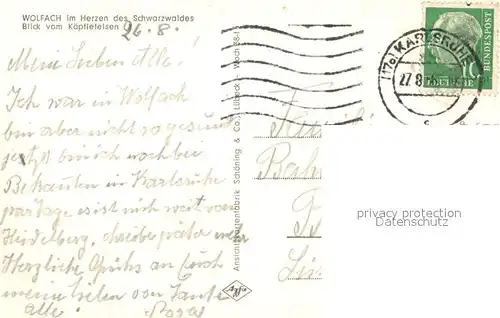 WOLFACH im Herzen des Schwarzwaldes
Blick vom Käpflefelsen
26.8.
Meine Lieben Alle!
Ich war in Wolfach
bin aber nicht so gesund
jetzt bin ich noch bei
Bekannten in Karlsruhe
paar Tage es ist nich weit von
Heidelberg, schreibe mehr
Herzliche Grüße an Euch
meine Lieben von Tante
alle. Rosa
Ansichtskartenfabrik Schöning & Co., Lübeck - Wolch 38-1
(17a) KARLSRUHE
27.8.
10
DEUTSCHE
BUNDESPOST
Fam
Bahn
privacy protection
watermark